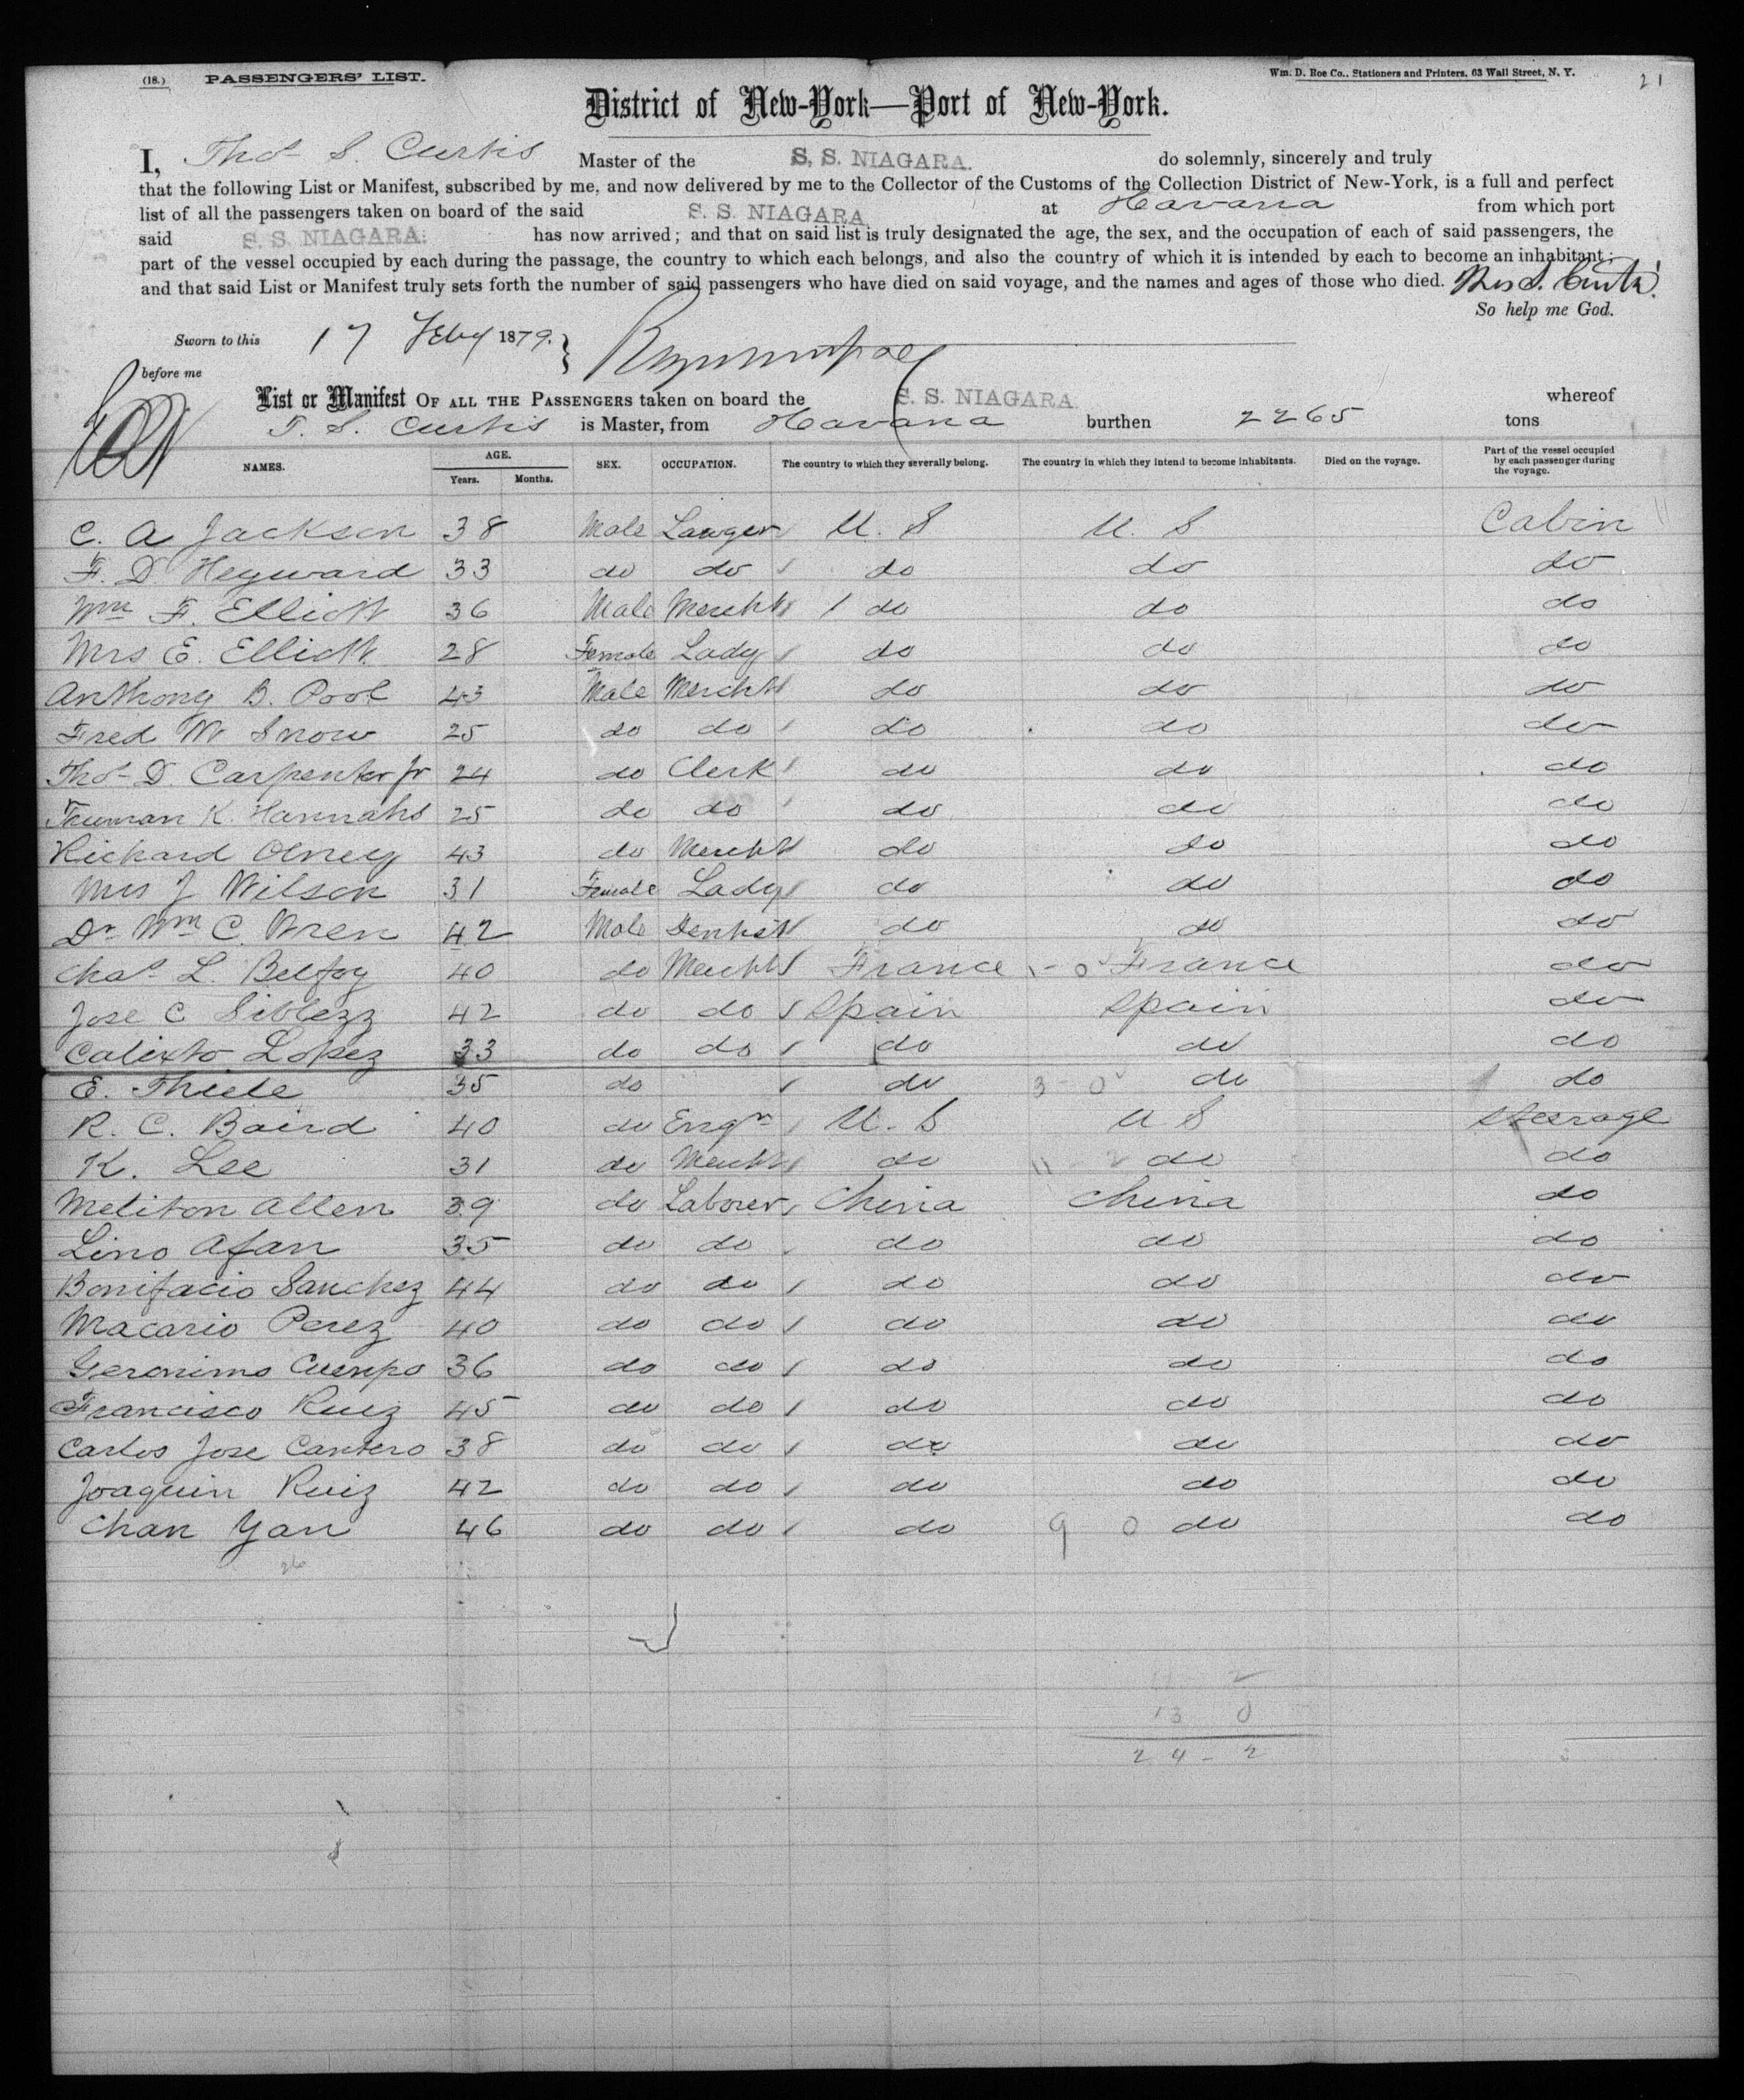 (18.) PASSENGERS' LIST. Wm. D. Roe Co., Stationers and Printers, 63 Wall Street, N. Y. 21
District of New-York—Port of New-York.
I, Thos S. Curtis Master of the S. S. NIAGARA. do solemnly, sincerely and truly
that the following List or Manifest, subscribed by me, and now delivered by me to the Collector of the Customs of the Collection District of New-York, is a full and perfect
list of all the passengers taken on board of the said S. S. NIAGARA at Havana from which port
said S. S. NIAGARA. has now arrived; and that on said list is truly designated the age, the sex, and the occupation of each of said passengers, the
part of the vessel occupied by each during the passage, the country to which each belongs, and also the country of which it is intended by each to become an inhabitant;
and that said List or Manifest truly sets forth the number of said passengers who have died on said voyage, and the names and ages of those who died. Thos S. Curtis
So help me God.
Sworn to this 17 Feby 1879.
before me
List or Manifest OF ALL THE PASSENGERS taken on board the S. S. NIAGARA. whereof
T. S. Curtis is Master, from Havana burthen 2265 tons
NAMES. AGE. Years. Months. SEX. OCCUPATION. The country to which they severally belong. The country in which they intend to become inhabitants. Died on the voyage. Part of the vessel occupied by each passenger during the voyage.
C. A Jackson 38 Male Lawyer U. S U. S Cabin
F. D Heyward 33 do do do do do
Wm F. Elliott 36 Male Mercht do do do
Mrs E. Elliott 28 Female Lady do do do
Anthony B. Pool 43 Male Mercht do do do
Fred W Snow 25 do do do do do
Thos D. Carpenter Jr 24 do Clerk do do do
Truman K. Hannahs 25 do do do do do
Richard Olney 43 do Mercht do do do
Mrs J Wilson 31 Female Lady do do do
Dr Wm C. Wren 42 Male Dentist do do do
Chas L. Belfoy 40 do Mercht France - 0 France do
Jose C Siblezz 42 do do Spain Spain do
Calixto Lopez 33 do do do do do
E. Thiele 35 do do 3 0 do do
R. C. Baird 40 do Engr U. S U S Steerage
K. Lee 31 do Mercht do 11 2 do do
Meliton Allen 39 do Laborer China China do
Lino Afan 35 do do do do do
Bonifacio Sanchez 44 do do do do do
Macario Perez 40 do do do do do
Geronimo Cuerpo 36 do do do do do
Francisco Ruiz 45 do do do do do
Carlos Jose Cantero 38 do do do do do
Joaquin Ruiz 42 do do do do do
Chan Yan 46 do do do 9 0 do do
26
11 2
13 0
24 - 2